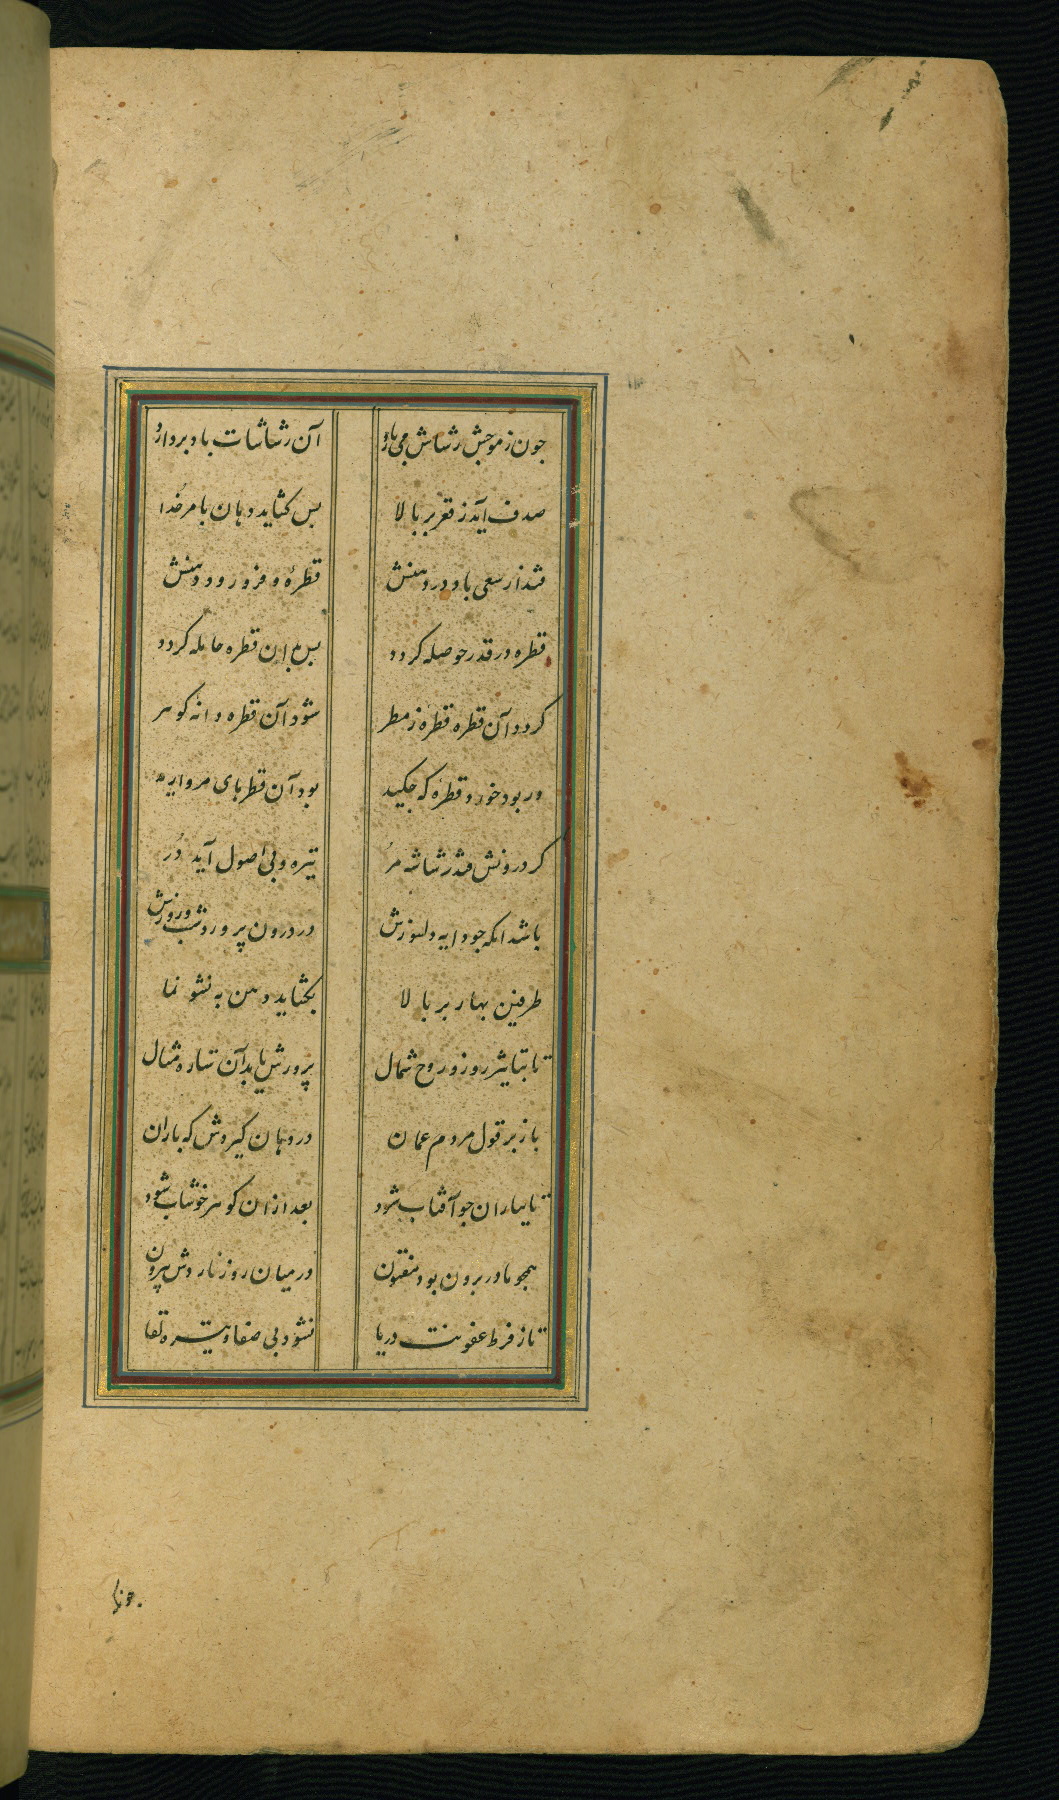 جون ز موجش رشاش می بارد آن رشاشات باد بردارد
صدف آید ز قعر بر بالا بس کشاید دهان بامر خدا
فتد از سعی باد در دهنش قطرهٔ و فرو رود دهنش
قطره در قدر حوصله کردد بس بان قطره حامله کردد
کردد آن قطره قطرهٔ ز مطر شود آن قطره دانهٔ کوهر
ور بود خورد قطرهٔ که جکید بود آن قطرهای مروارید
کر درونش فتد رشاشهٔ مر تیره و بی اصول آید در
باشد انکه جو دایهٔ دلسوزش در درون پرورد شب و روزش
طرفین بهار بر بالا بکشاید دهن به نشو نما
تا بتاثیر روز و روح شمال پرورش یابد آن ستاره مثال
باز بر قول مردم عمان در دهان کیردش که باران
تا بباران جو آفتاب شود بعد از ان کوهر خوشاب شود
همجو مادر برون بود مفتون در میان روز ناردش بیرون
تا ز فرط عفونت دریا نشود بی صفا و تیره لقا
جونکه